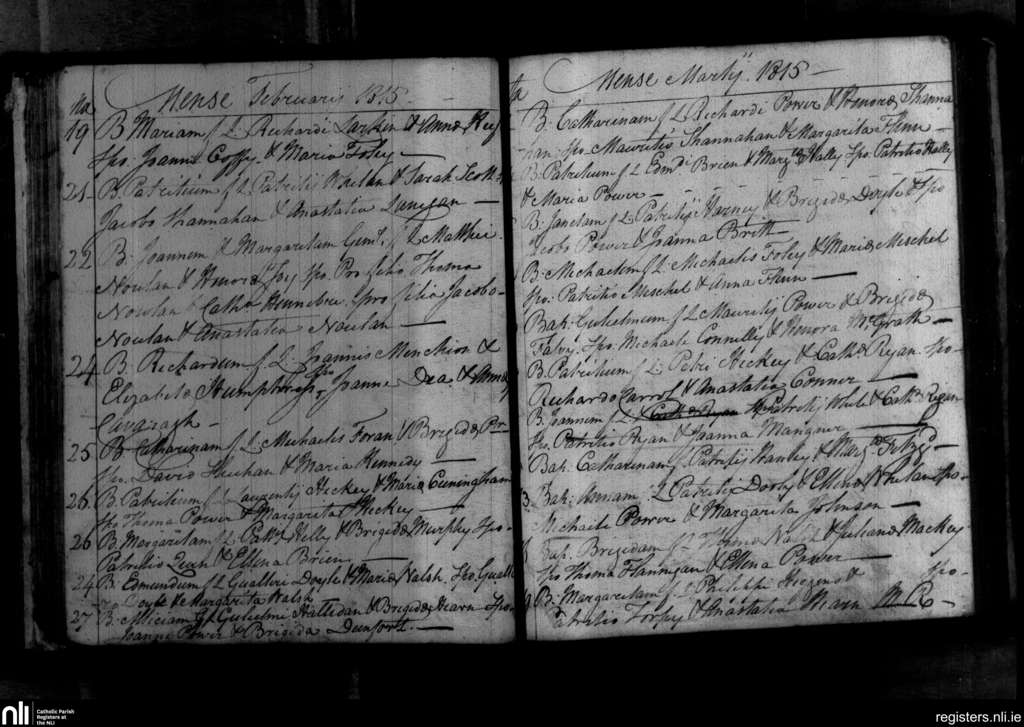 Mense Februaris 1815
19 B Mariam f L Richardi Larken & Anna
Spo. Joanne Coffy & Maria Foley
21 B Patritium f L Patritij Whelan & Sarah Scott
Jacobo Shannahan & Anastatia Lanigan
22 B. Joannem & Margaritam Gem. f L Matthei
Nowlan & Honora Foy Spo. Pro filio Thoma
Nowlan & Cath. Hennebre. pro filia Jacobo
Nowlan & Anastatia Nowlan
24 B Richardum f L Joannis Menchion &
Elizabeta Humphreys Spo Joanne Dea & Anna
Cavanagh
25 B Catharinam f L Michaelis Foran & Brigida
Spo. David Sheehan & Maria Kennedy
26 B Patritium f Laurentij Hickey & Maria Cuningham
Spo Thoma Power & Margarita Hickey
26 B Margaritam f L Kelly & Brigida Murphy Spo
Patritio Quin & Ellena Brien
24 B. Edmundum f L Gualteri Doyle & Maria Walsh. Spo Gualte
ro Doyle & Margarita Walsh
27 B. f L Gulielmi & Brigida Hearn Spo
Joanne Power & Brigida Dunfort.
Mense Martij 1815
B. Catharinam f L Richardi Power & Honora Shanna
han. Spo Mauritio Shannahan & Margarita Flinn
B. Patritium f L Edm. Brien & Marg. Hally Spo. Patritio Hally
& Maria Power
B. f L Patritij & Brigida Doyle & Spo
Jacobo Power & Joanna Britt
B. Michaelem f L Michaelis Foley & Maria Meschel
Spo: Patritio Meschel & Anna Flinn
Bap: Gulielmum f L Mauritij Power & Brigida
Falvy. Spo. Michaele Connelly & Honora McGrath
B. Patritium f L Petri Hickey & Cath. Ryan. Spo
Richardo Carrol & Anastatia Conner
B. Joannem f L Patritij White & Cath. Regan
Spo. Patritio Ryan & Joanna Mangner
Bap. Catharinam f Patritij Hanley & Marg. Fitzg
3 Bap: Annam L Patritij Dooly & Ellena Whelan Spo
Michaele Power & Margarita Johnson
Bap. Brigidam f L Thoma Walsh & Juliana Mackey
Spo Thoma Flannigan & Ellena Power
9 B. Margaritam f L Philippi & Spo
Patritio Torpy & Anastatia
nli
Catholic Parish
Registers at
the NLI
registers.nli.ie